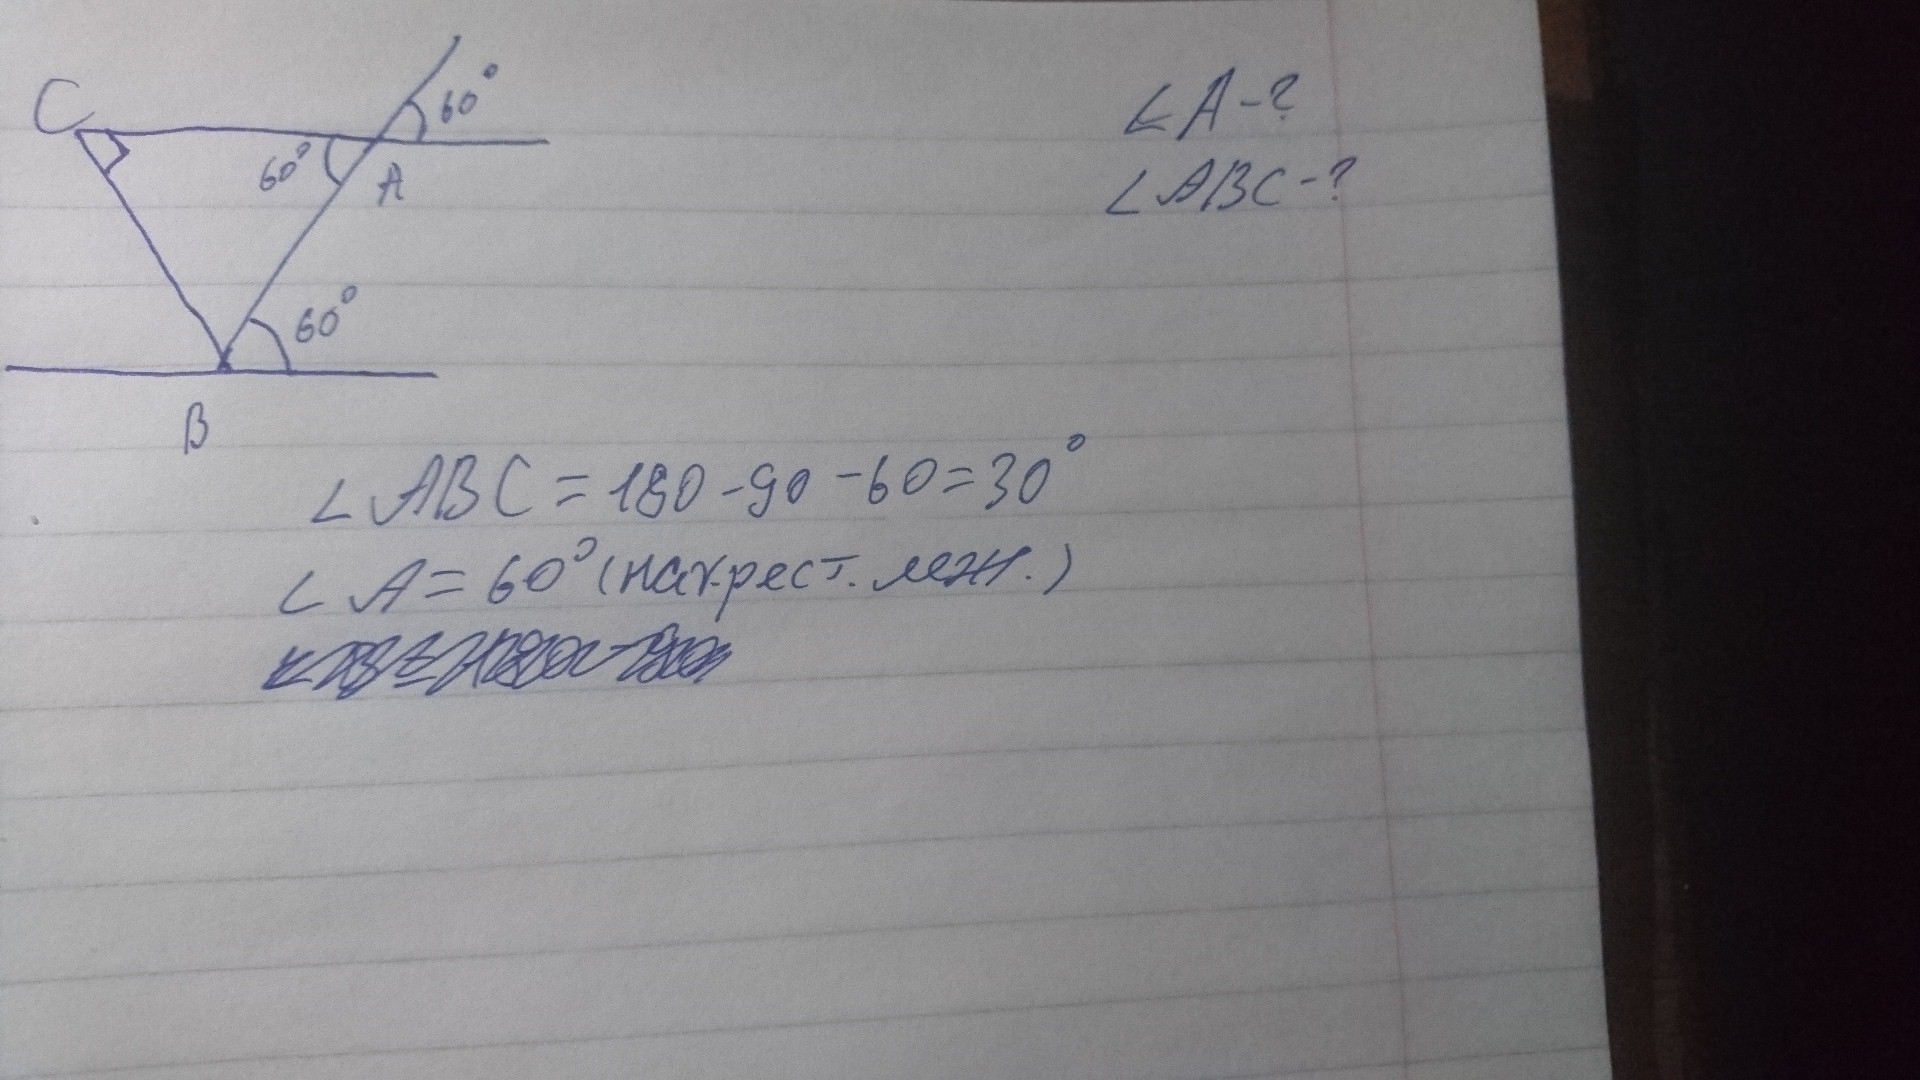 C
60°
∠A-?
60°
A
∠ABC-?
60°
B
∠ABC=180-90-60=30°
∠A=60°(накрест. леж.)